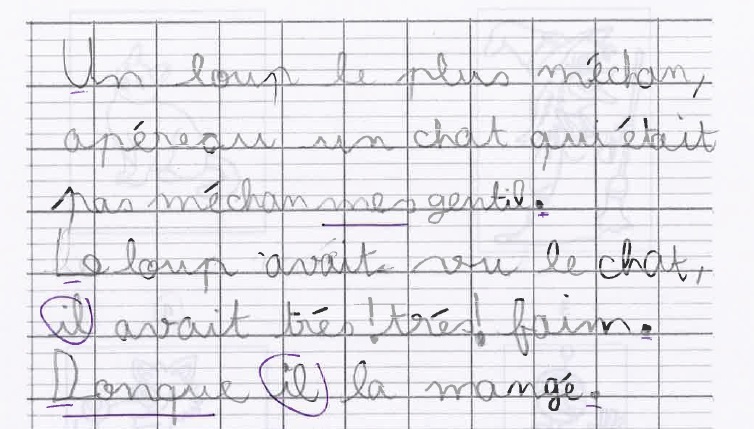 Un loup le plus méchan,
apéreçu un chat qui était
pas méchan mes gentil.
Le loup avait vu le chat,
il avait trés ! trés ! faim.
Donque il la mangé.